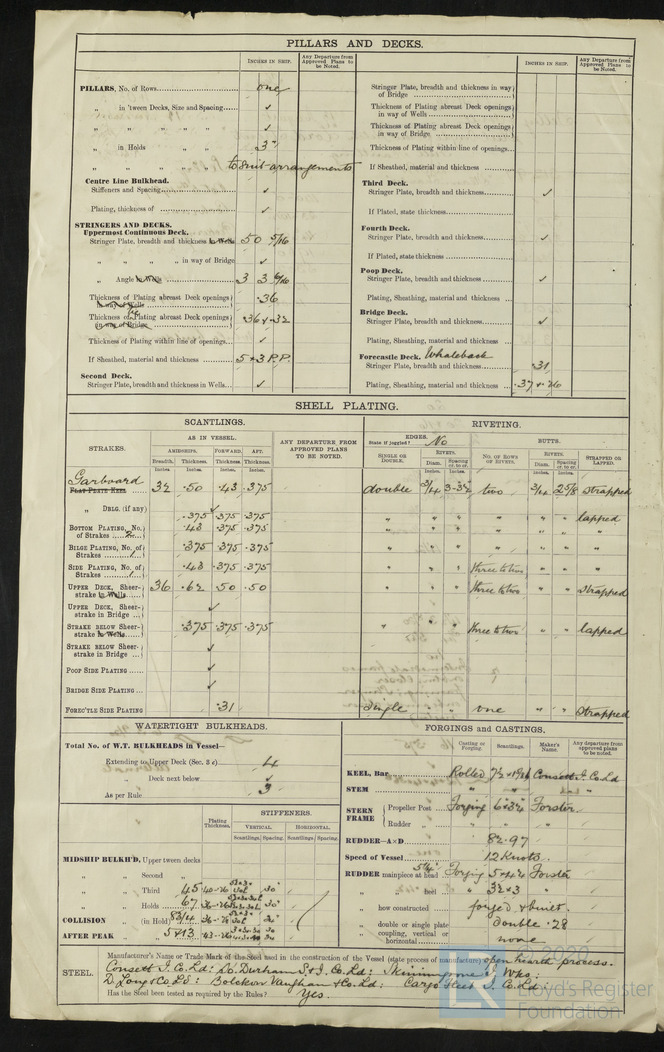 PILLARS AND DECKS.
INCHES IN SHIP.
Any Departure from Approved Plans to be Noted.
INCHES IN SHIP.
Any Departure from Approved Plans to be Noted.
PILLARS, No. of Rows one
„ in 'tween Decks, Size and Spacing ✓
„ „ „ „ ✓
„ in Holds „ „ 3"
„ „ „ to suit arrangements
Centre Line Bulkhead.
Stiffeners and Spacing ✓
Plating, thickness of ✓
STRINGERS AND DECKS.
Uppermost Continuous Deck.
Stringer Plate, breadth and thickness in Wells 50 5/16
„ „ „ „ in way of Bridge ✓
„ Angle in Wells 3 3 6/16
Thickness of Plating abreast Deck openings in way of Wells .36
Thickness of Plating abreast Deck openings in way of Bridge .36 & .32
Thickness of Plating within line of openings ✓
If Sheathed, material and thickness 5 & 3 P.P.
Second Deck.
Stringer Plate, breadth and thickness in Wells ✓
Stringer Plate, breadth and thickness in way of Bridge
Thickness of Plating abreast Deck openings in way of Wells
Thickness of Plating abreast Deck openings in way of Bridge
Thickness of Plating within line of openings
If Sheathed, material and thickness
Third Deck.
Stringer Plate, breadth and thickness ✓
If Plated, state thickness
Fourth Deck.
Stringer Plate, breadth and thickness ✓
If Plated, state thickness
Poop Deck.
Stringer Plate, breadth and thickness ✓
Plating, Sheathing, material and thickness
Bridge Deck.
Stringer Plate, breadth and thickness ✓
Plating, Sheathing, material and thickness
Forecastle Deck. Whaleback
Stringer Plate, breadth and thickness .31
Plating, Sheathing, material and thickness .37 & .26
SHELL PLATING.
SCANTLINGS.
RIVETING.
STRAKES.
AS IN VESSEL.
AMIDSHIPS. FORWARD. AFT.
Breadth. Thickness. Thickness. Thickness.
Inches. Inches. Inches. Inches.
ANY DEPARTURE FROM APPROVED PLANS TO BE NOTED.
EDGES.
State if joggled? No
SINGLE OR DOUBLE.
RIVETS.
Diam. Spacing cr. to cr.
Inches. Inches.
BUTTS.
NO. OF ROWS OF RIVETS.
RIVETS.
Diam. Spacing cr. to cr.
Inches. Inches.
STRAPPED OR LAPPED.
Garboard
FLAT PLATE KEEL 32 .50 .43 .375 double 3/4 3-3½ two 3/4 2⅝ strapped
„ DBLG. (if any) ✓
.375 .375 .375 „ „ „ „ „ „ lapped
BOTTOM PLATING, No. of Strakes 2 .43 .375 .375 „ „ „ „ „ „ „
BILGE PLATING, No. of Strakes 1 .375 .375 .375 „ „ „ „ „ „ „
SIDE PLATING, No. of Strakes 1 .43 .375 .375 „ „ „ three to two „ „ „
UPPER DECK, Sheerstrake in Wells 36 .62 .50 .50 three to two „ „ strapped
UPPER DECK, Sheerstrake in Bridge ✓
STRAKE BELOW Sheerstrake in Wells .375 .375 .375 „ „ „ three to two „ „ lapped
STRAKE BELOW Sheerstrake in Bridge ✓
POOP SIDE PLATING ✓
BRIDGE SIDE PLATING ✓
FOREC'TLE SIDE PLATING .31 single „ „ one „ „ strapped
WATERTIGHT BULKHEADS.
Total No. of W.T. BULKHEADS in Vessel—
Extending to Upper Deck (Sec. 3 c) 4
„ Deck next below ✓
As per Rule 3
Plating Thickness.
STIFFENERS.
VERTICAL. HORIZONTAL.
Scantlings. Spacing. Scantlings. Spacing.
MIDSHIP BULKH'D, Upper tween decks
„ „ Second „
„ „ Third „ 45 30"
„ „ Holds 67 30"
COLLISION „ (in Hold) 83/4 30"
AFTER PEAK „ „ 5 & 13
FORGINGS and CASTINGS.
Casting or Forging. Scantlings. Maker's Name. Any departure from approved plans to be noted.
KEEL, Bar Rolled Consett I. Co. Ld
STEM „ „ „
STERN FRAME
Propeller Post Forging Forster
Rudder „ „ „ „
RUDDER—A×D 82.97
Speed of Vessel 12 Knots.
RUDDER mainpiece at head Forging Forster
„ „ heel „ 3½ × 3 „
„ how constructed forged & built.
„ double or single plate double .28
„ coupling, vertical or horizontal none
STEEL.
Manufacturer's Name or Trade Mark of the Steel used in the construction of the Vessel (state process of manufacture) open hearth process.
Consett I. Co. Ld: So. Durham S. & I. Co. Ld: Skinningrove I. Wks:
D. Long & Co Ld: Bolckow Vaughan & Co. Ld: Cargo Fleet I. Co. Ld:
Has the Steel been tested as required by the Rules? Yes.
© 2020
Lloyd's Register
Foundation